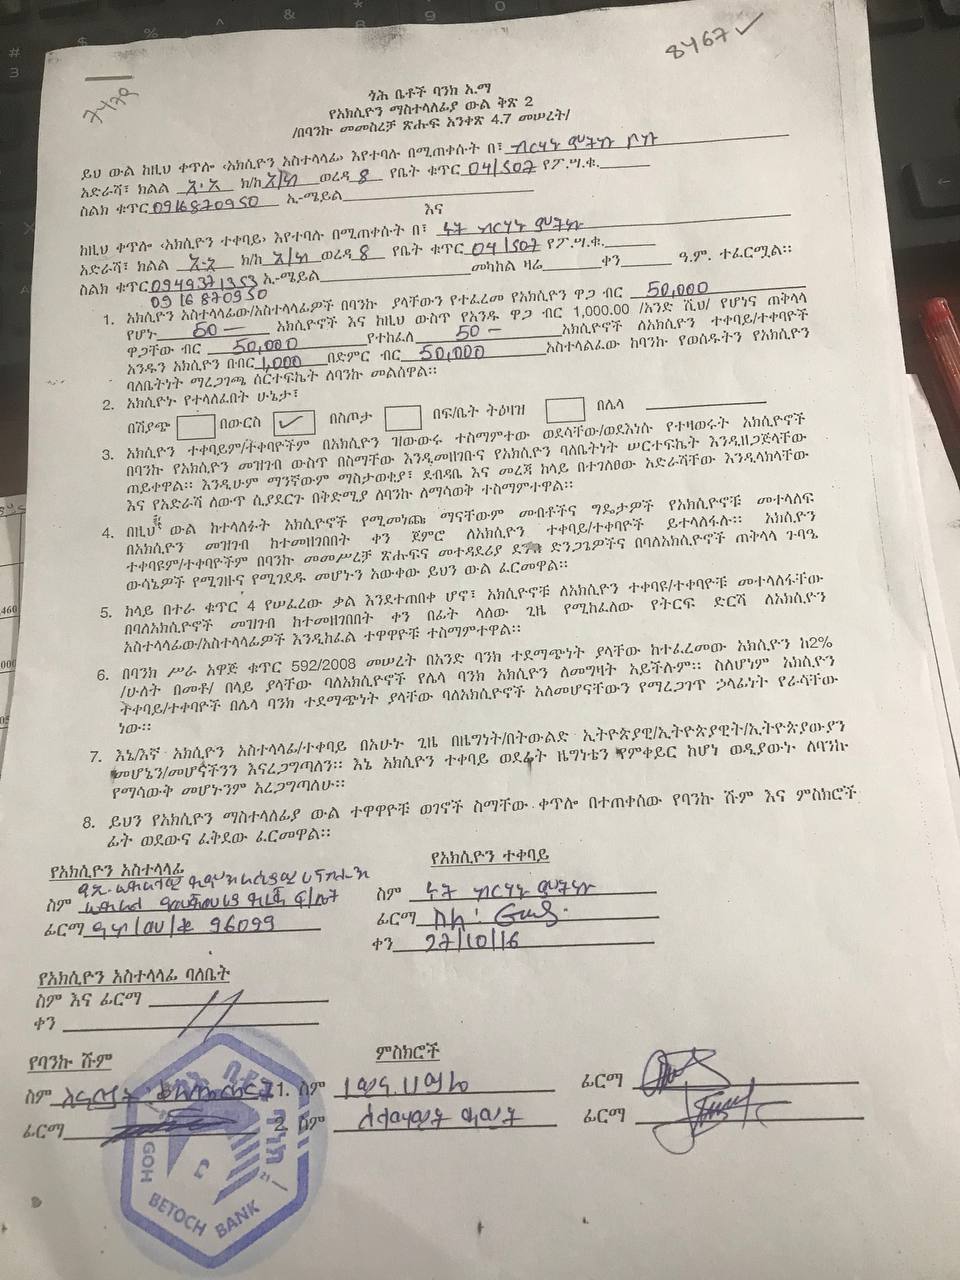 8467✓
7479
ጎሕ ቤቶች ባንክ አ.ማ
የአክሲዮን ማስተላለፊያ ውል ቅጽ 2
/በባንኩ መመስረቻ ጽሑፍ አንቀጽ 4.7 መሠረት/
ይህ ውል ከዚህ ቀጥሎ ‹አክሲዮን አስተላላፊ› እየተባሉ በሚጠቀሱት በ፣ ብርሃኑ
አድራሻ፣ ክልል አ.አ ክ/ከ ወረዳ 8 የቤት ቁጥር 04/507 የፖ.ሣ.ቁ.
ስልክ ቁጥር 0916870950 ኢ-ሜይል
እና
ከዚህ ቀጥሎ ‹አክሲዮን ተቀባይ› እየተባሉ በሚጠቀሱት በ፣ ሩት ብርሃኑ
አድራሻ፣ ክልል አ.አ ክ/ከ ወረዳ 8 የቤት ቁጥር 04/507 የፖ.ሣ.ቁ.
ስልክ ቁጥር 0949371353 ኢ-ሜይል መካከል ዛሬ ቀን ዓ.ም. ተፈርሟል፡፡
0916870950
1. አክሲዮን አስተላላፊው/አስተላላፊዎች በባንኩ ያላቸውን የተፈረመ የአክሲዮን ዋጋ ብር 50,000
የሆኑ 50 — አክሲዮኖች እና ከዚህ ውስጥ የአንዱ ዋጋ ብር 1,000.00 /አንድ ሺህ/ የሆነና ጠቅላላ
ዋጋቸው ብር 50,000 የተከፈለ 50 — አክሲዮኖች ለአክሲዮን ተቀባይ/ተቀባዮች
አንዱን አክሲዮን በብር 1,000 በድምር ብር 50,000 አስተላልፈው ከባንኩ የወሰዱትን የአክሲዮን
ባለቤትነት ማረጋገጫ ሰርተፍኬት ለባንኩ መልሰዋል፡፡
2. አክሲዮኑ የተላለፈበት ሁኔታ፣
በሽያጭ በውርስ ✓ በስጦታ በፍ/ቤት ትዕዛዝ በሌላ
3. አክሲዮን ተቀባይም/ተቀባዮችም በአክሲዮን ዝውውሩ ተስማምተው ወደሳቸው/ወደእነሱ የተዛወሩት አክሲዮኖች
በባንኩ የአክሲዮን መዝገብ ውስጥ በስማቸው እንዲመዘገቡና የአክሲዮን ባለቤትነት ሠርተፍኬት እንዲዘጋጅላቸው
ጠይቀዋል፡፡ እንዲሁም ማንኛውም ማስታወቂያ፣ ደብዳቤ እና መረጃ ከላይ በተገለፀው አድራሻቸው እንዲላክላቸው
እና የአድራሻ ለውጥ ሲያደርጉ በቅድሚያ ለባንኩ ለማሳወቅ ተስማምተዋል፡፡
4. በዚህ ውል ከተላለፉት አክሲዮኖች የሚመነጩ ማናቸውም መብቶችና ግዴታዎች የአክሲዮኖቹ መተላለፍ
በአክሲዮን መዝገብ ከተመዘገበበት ቀን ጀምሮ ለአክሲዮን ተቀባይ/ተቀባዮች ይተላለፋሉ፡፡ አክሲዮን
ተቀባዩም/ተቀባዮችም በባንኩ መመሥረቻ ጽሑፍና መተዳደሪያ ድንጋጌዎችና በባለአክሲዮኖች ጠቅላላ ጉባዔ
ውሳኔዎች የሚገዙና የሚገደዱ መሆኑን አውቀው ይህን ውል ፈርመዋል፡፡
5. ከላይ በተራ ቁጥር 4 የሠፈረው ቃል እንደተጠበቀ ሆኖ፣ አክሲዮኖቹ ለአክሲዮን ተቀባዩ/ተቀባዮቹ መተላለፋቸው
በባለአክሲዮኖች መዝገብ ከተመዘገበበት ቀን በፊት ላለው ጊዜ የሚከፈለው የትርፍ ድርሻ ለአክሲዮን
አስተላላፊው/አስተላላፊዎች እንዲከፈል ተዋዋዮቹ ተስማምተዋል፡፡
6. በባንክ ሥራ አዋጅ ቁጥር 592/2008 መሠረት በአንድ ባንክ ተደማጭነት ያላቸው ከተፈረመው አክሲዮን ከ2%
/ሁለት በመቶ/ በላይ ያላቸው ባለአክሲዮኖች የሌላ ባንክ አክሲዮን ለመግዛት አይችሉም፡፡ ስለሆነም አክሲዮን
ተቀባይ/ተቀባዮች በሌላ ባንክ ተደማጭነት ያላቸው ባለአክሲዮኖች አለመሆናቸውን የማረጋገጥ ኃላፊነት የራሳቸው
ነው፡፡
7. እኔ/እኛ አክሲዮን አስተላላፊ/ተቀባይ በአሁኑ ጊዜ በዜግነት/በትውልድ ኢትዮጵያዊ/ኢትዮጵያዊት/ኢትዮጵያውያን
መሆኔን/መሆናችንን እናረጋግጣለን፡፡ እኔ አክሲዮን ተቀባይ ወደፊት ዜግነቴን የምቀይር ከሆነ ወዲያውኑ ለባንኩ
የማሳውቅ መሆኑንም አረጋግጣለሁ፡፡
8. ይህን የአክሲዮን ማስተላለፊያ ውል ተዋዋዮቹ ወገኖች ስማቸው ቀጥሎ በተጠቀሰው የባንኩ ሹም እና ምስክሮች
ፊት ወደውና ፈቅደው ፈርመዋል፡፡
የአክሲዮን አስተላላፊ
የአክሲዮን ተቀባይ
ስም
ፊርማ 96099
ስም ሩት ብርሃኑ
ፊርማ
ቀን 27/10/16
የአክሲዮን አስተላላፊ ባለቤት
ስም እና ፊርማ
ቀን
የባንኩ ሹም
ምስክሮች
ስም
1. ስም ፊርማ
ፊርማ
2. ስም ፊርማ
GOH BETOCH BANK